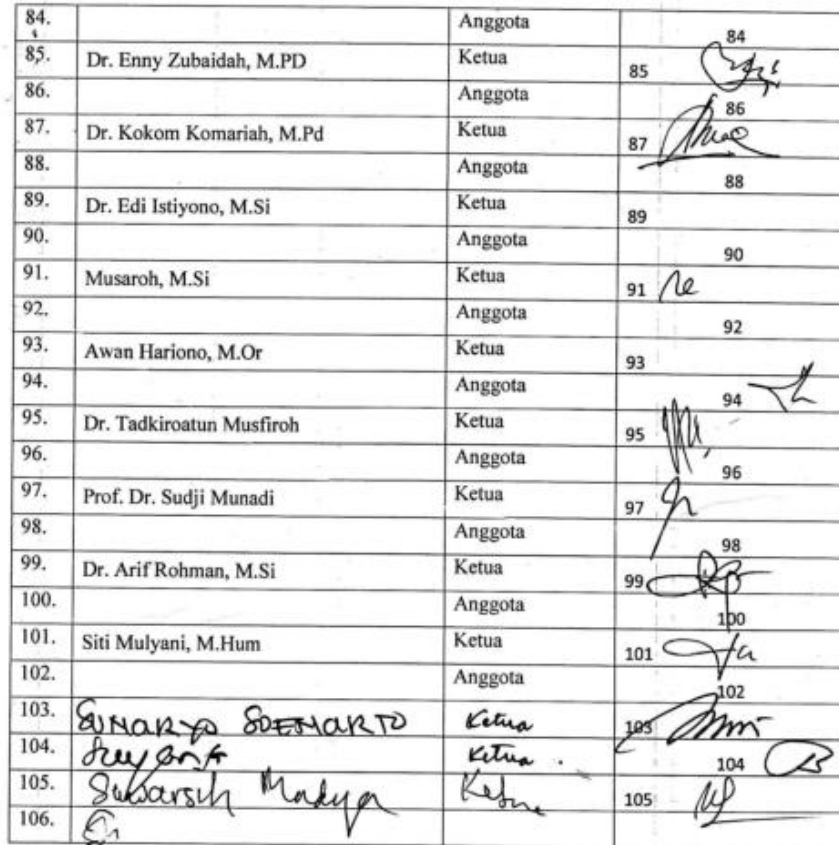 84. Anggota 84
85. Dr. Enny Zubaidah, M.PD Ketua 85
86. Anggota 86
87. Dr. Kokom Komariah, M.Pd Ketua 87
88. Anggota 88
89. Dr. Edi Istiyono, M.Si Ketua 89
90. Anggota 90
91. Musaroh, M.Si Ketua 91
92. Anggota 92
93. Awan Hariono, M.Or Ketua 93
94. Anggota 94
95. Dr. Tadkiroatun Musfiroh Ketua 95
96. Anggota 96
97. Prof. Dr. Sudji Munadi Ketua 97
98. Anggota 98
99. Dr. Arif Rohman, M.Si Ketua 99
100. Anggota 100
101. Siti Mulyani, M.Hum Ketua 101
102. Anggota 102
103. SUNARYO SOENARTO Ketua 103
104. Ketua 104
105. Suwarsih Madya Ketua 105
106.